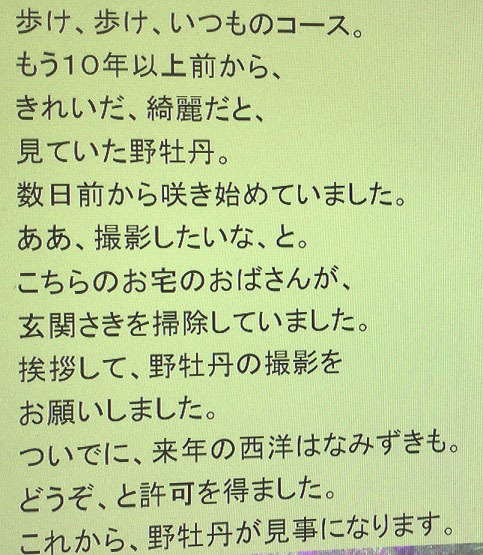 歩け、歩け、いつものコース。
もう１０年以上前から、
きれいだ、綺麗だと、
見ていた野牡丹。
数日前から咲き始めていました。
ああ、撮影したいな、と。
こちらのお宅のおばさんが、
玄関さきを掃除していました。
挨拶して、野牡丹の撮影を
お願いしました。
ついでに、来年の西洋はなみずきも。
どうぞ、と許可を得ました。
これから、野牡丹が見事になります。